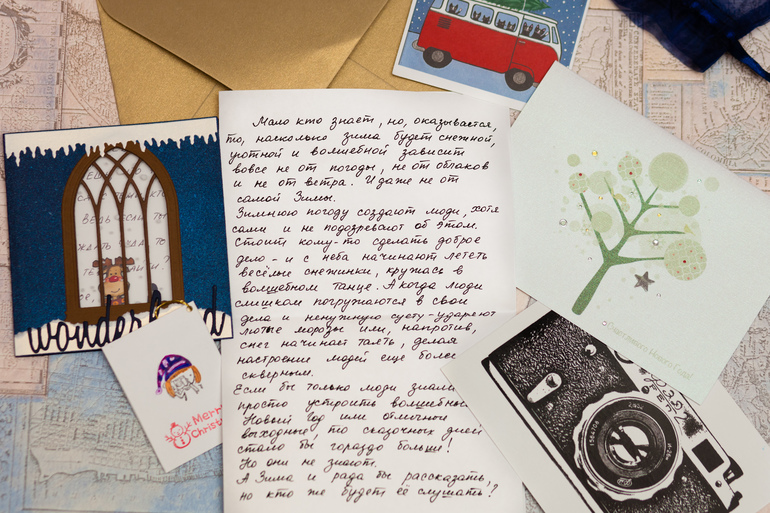 Мало кто знает, но, оказывается,
то, насколько зима будет снежной,
уютной и волшебной зависит
вовсе не от погоды, не от облаков
и не от ветра. И даже не от
самой Зимы.
Зимнюю погоду создают люди, хотя
сами и не подозревают об этом.
Стоит кому-то сделать доброе
дело - и с неба начинают лететь
весёлые снежинки, кружась в
волшебном танце. А когда люди
слишком погружаются в свои
дела и ненужную суету - ударяют
лютые морозы или, напротив,
снег начинает таять, делая
настроение людей еще более
скверным.
Если бы только люди знали
просто устроить волшебный
Новый год или обычные
выходные, то сказочных дней
стало бы гораздо больше!
Но они не знают.
А Зима и рада бы рассказать,
но кто же будет её слушать?
ВЕДЬ ЕСЛИ ТЫ
ЖДАТЬ ЧУДА ТО
wonderland
Merry
Christ